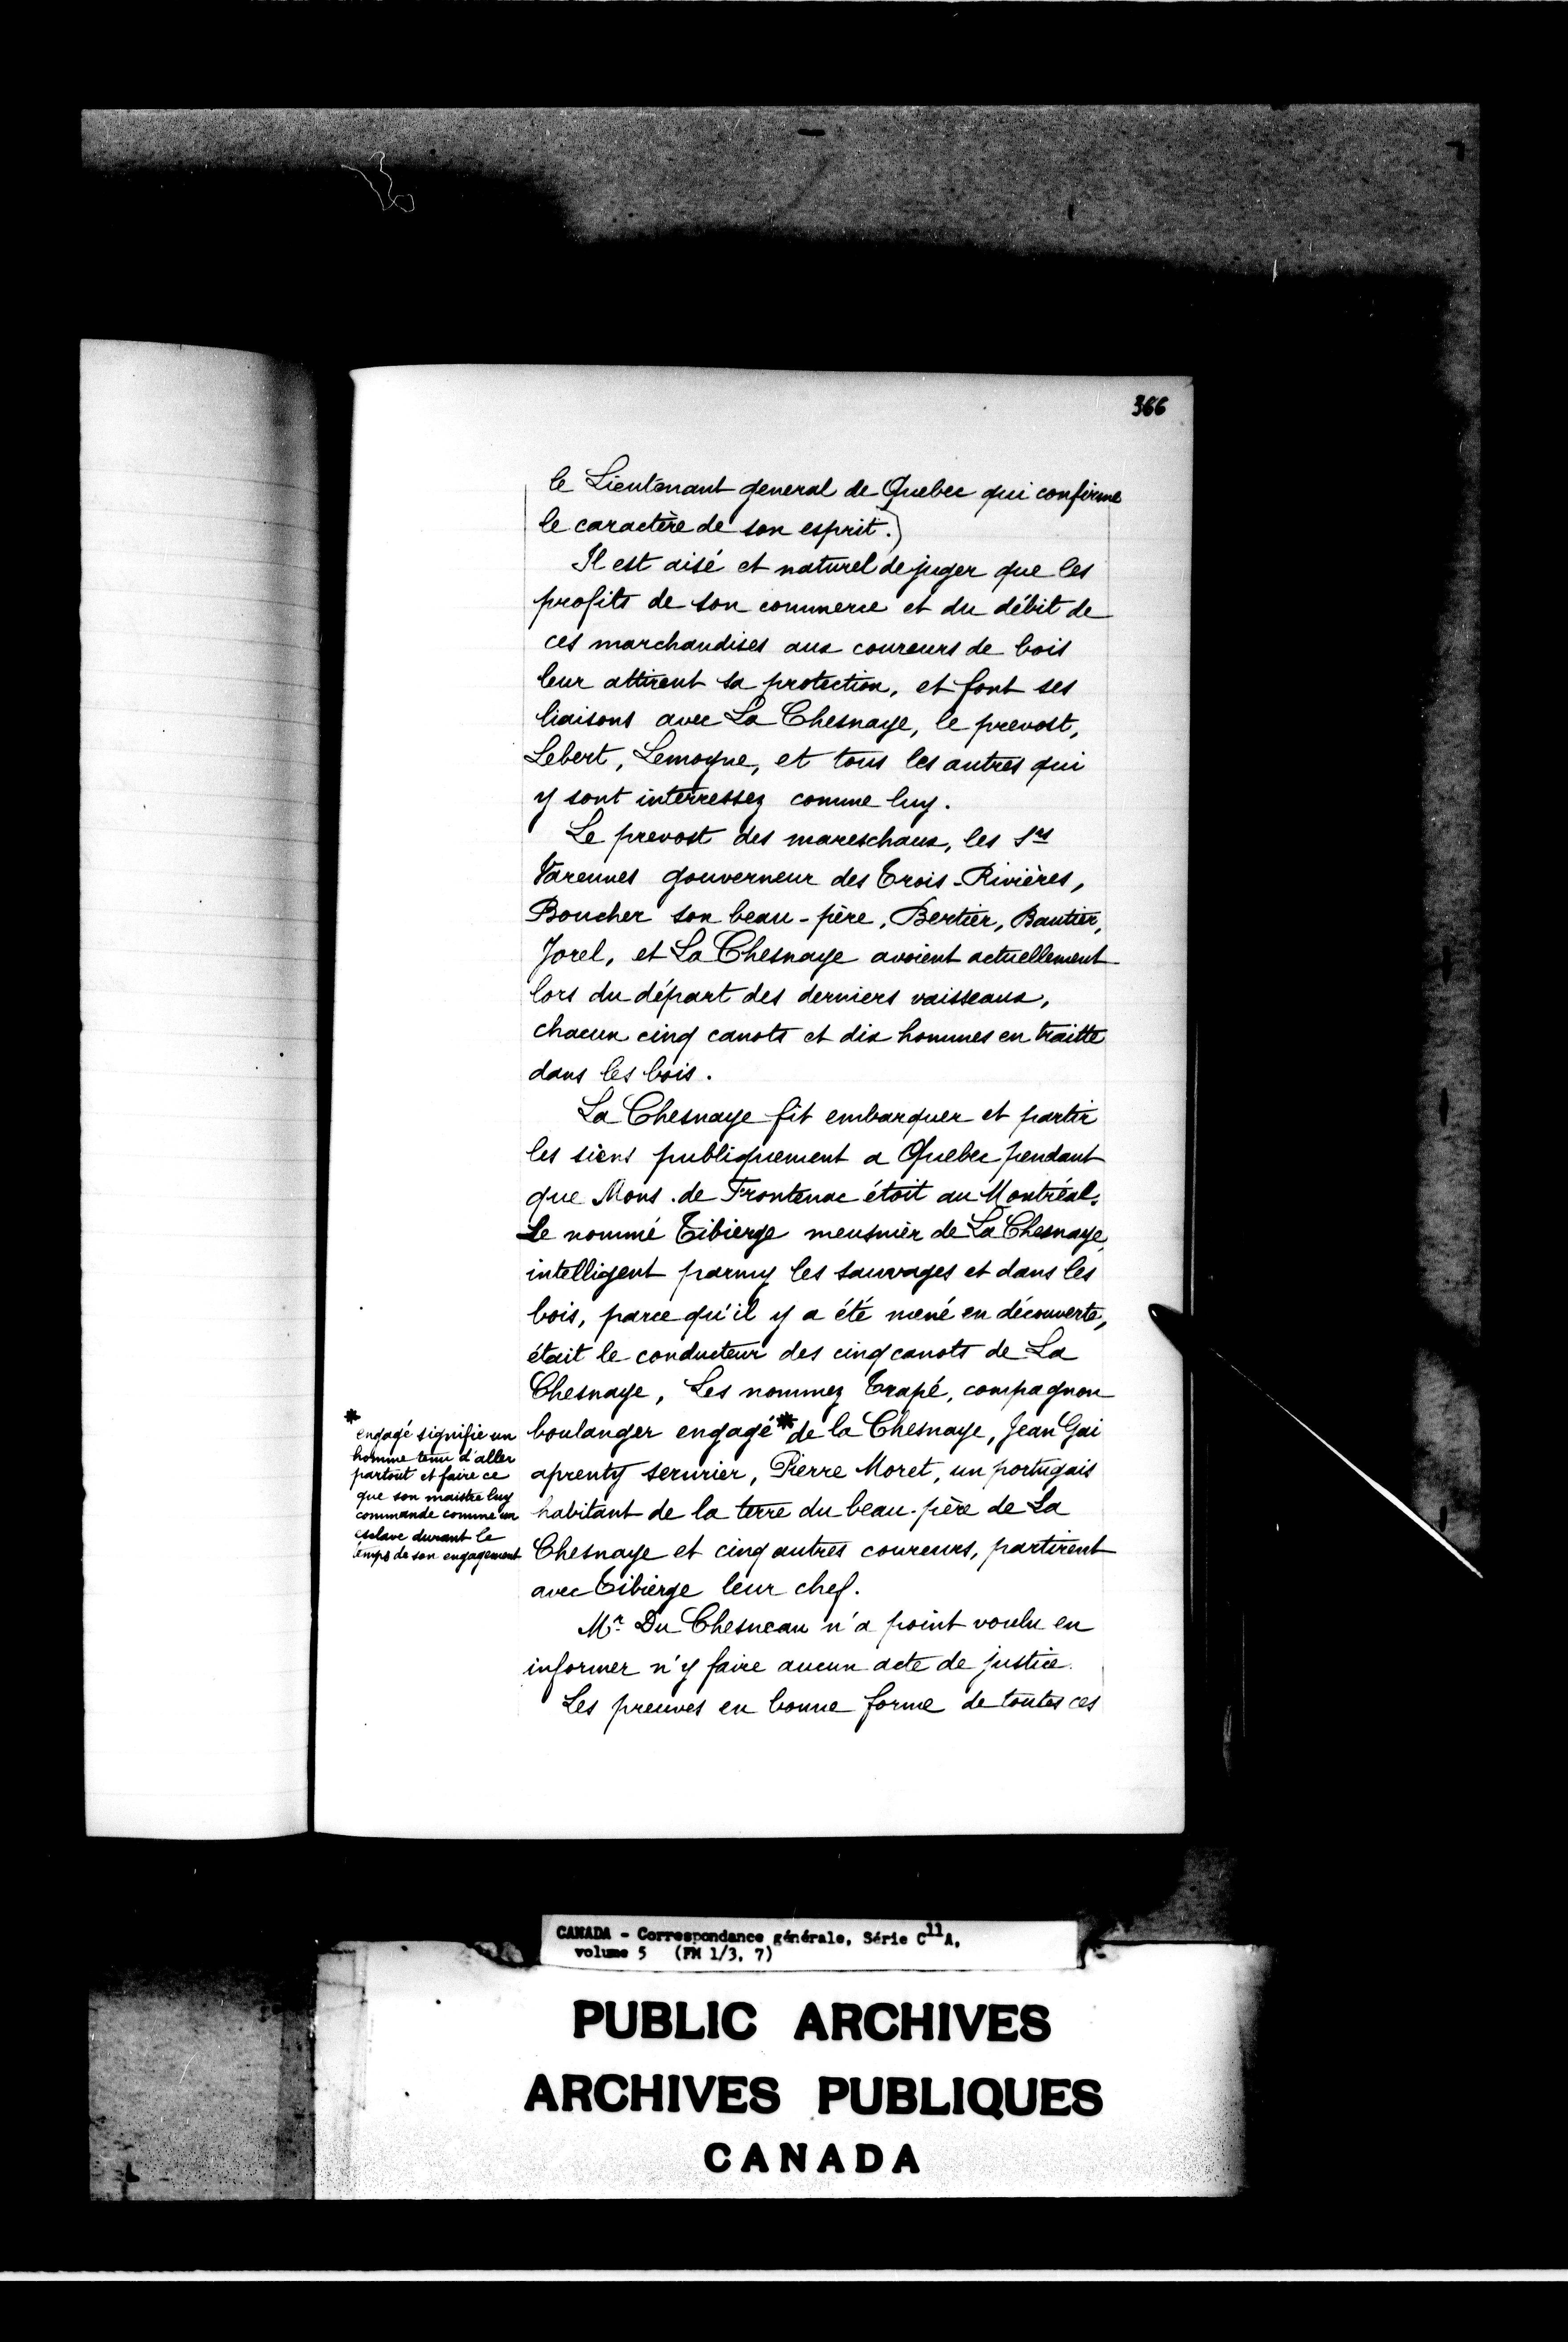 366
le Lieutenant general de Quebec qui confirme
le caractère de son esprit.)
Il est aisé et naturel de juger que les
profits de son commerce et du débit de
ces marchandises aux coureurs de bois
leur attirent sa protection, et font ses
liaisons avec La Chesnaye, le prevost,
Lebert, Lemoyne, et tous les autres qui
y sont interressez comme luy.
Le prevost des mareschaux, les Srs
Varennes gouverneur des Trois-Rivières,
Boucher son beau-père, Bertier, Bautier,
Jorel, et La Chesnaye avoient actuellement
lors du départ des derniers vaisseaux,
chacun cinq canots et dix hommes en traitte
dans les bois.
La Chesnaye fit embarquer et partir
les siens publiquement a Quebec pendant
que Mons. de Frontenac étoit au Montréal.
Le nommé Tibierge meusnier de La Chesnaye,
intelligent parmy les sauvages et dans les
bois, parce qu'il y a été mené en découverte,
était le conducteur des cinq canots de La
Chesnaye, Les nommez Trapé, compagnon
boulanger engagé * de la Chesnaye, Jean Gai
aprenty serurier, Pierre Moret, un portugais
habitant de la terre du beau-père de La
Chesnaye et cinq autres coureurs, partirent
avec Tibierge leur chef.
Mr. Du Chesneau n'a point voulu en
informer n'y faire aucun acte de justice.
Les preuves en bonne forme de toutes ces
*
engagé signifie un
homme tenu d'aller
partout et faire ce
que son maistre luy
commande comme un
esclave durant le
temps de son engagement
CANADA - Correspondance générale, Série C11A,
volume 5 (FM 1/3, 7)
PUBLIC ARCHIVES
ARCHIVES PUBLIQUES
CANADA